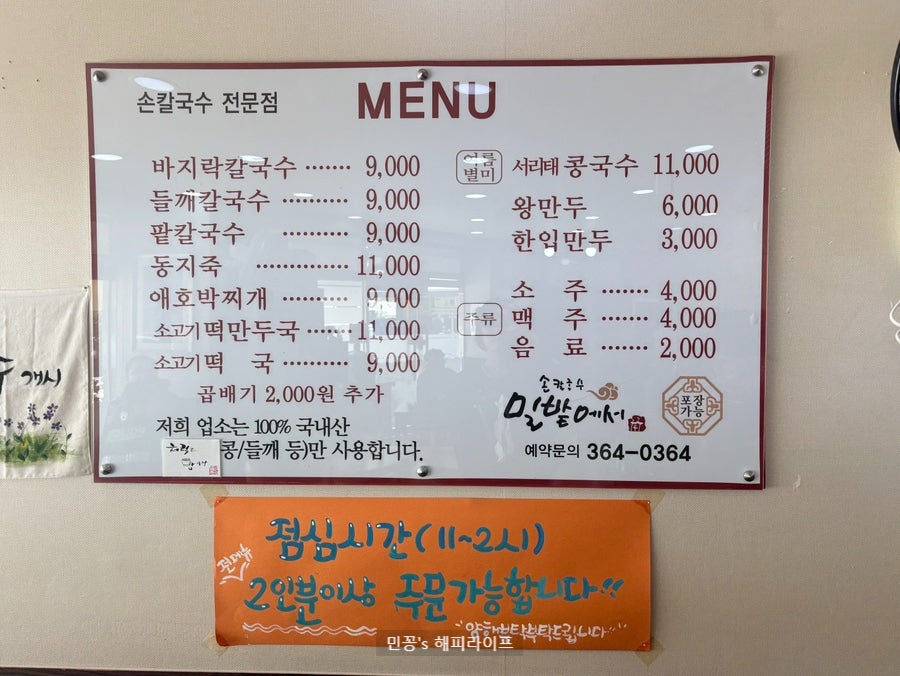 손칼국수 전문점
MENU
바지락칼국수 ······· 9,000
들깨칼국수 ·········· 9,000
팥칼국수 ·········· 9,000
동지죽 ·············· 11,000
애호박찌개 ·········· 9,000
소고기떡만두국 ······· 11,000
소고기떡 국 ·········· 9,000
곱배기 2,000원 추가
저희 업소는 100% 국내산
콩/들깨 등)만 사용합니다.
여름별미
서리태 콩국수 11,000
왕만두 6,000
한입만두 3,000
주류
소 주 ········ 4,000
맥 주 ········ 4,000
음 료 ········ 2,000
손칼국수
밀밭에서
포장
가능
예약문의 364-0364
개시
점심시간(11~2시)
전메뉴
2인분이상 주문가능합니다!!
양해부탁드립니다
민꽁's 해피라이프